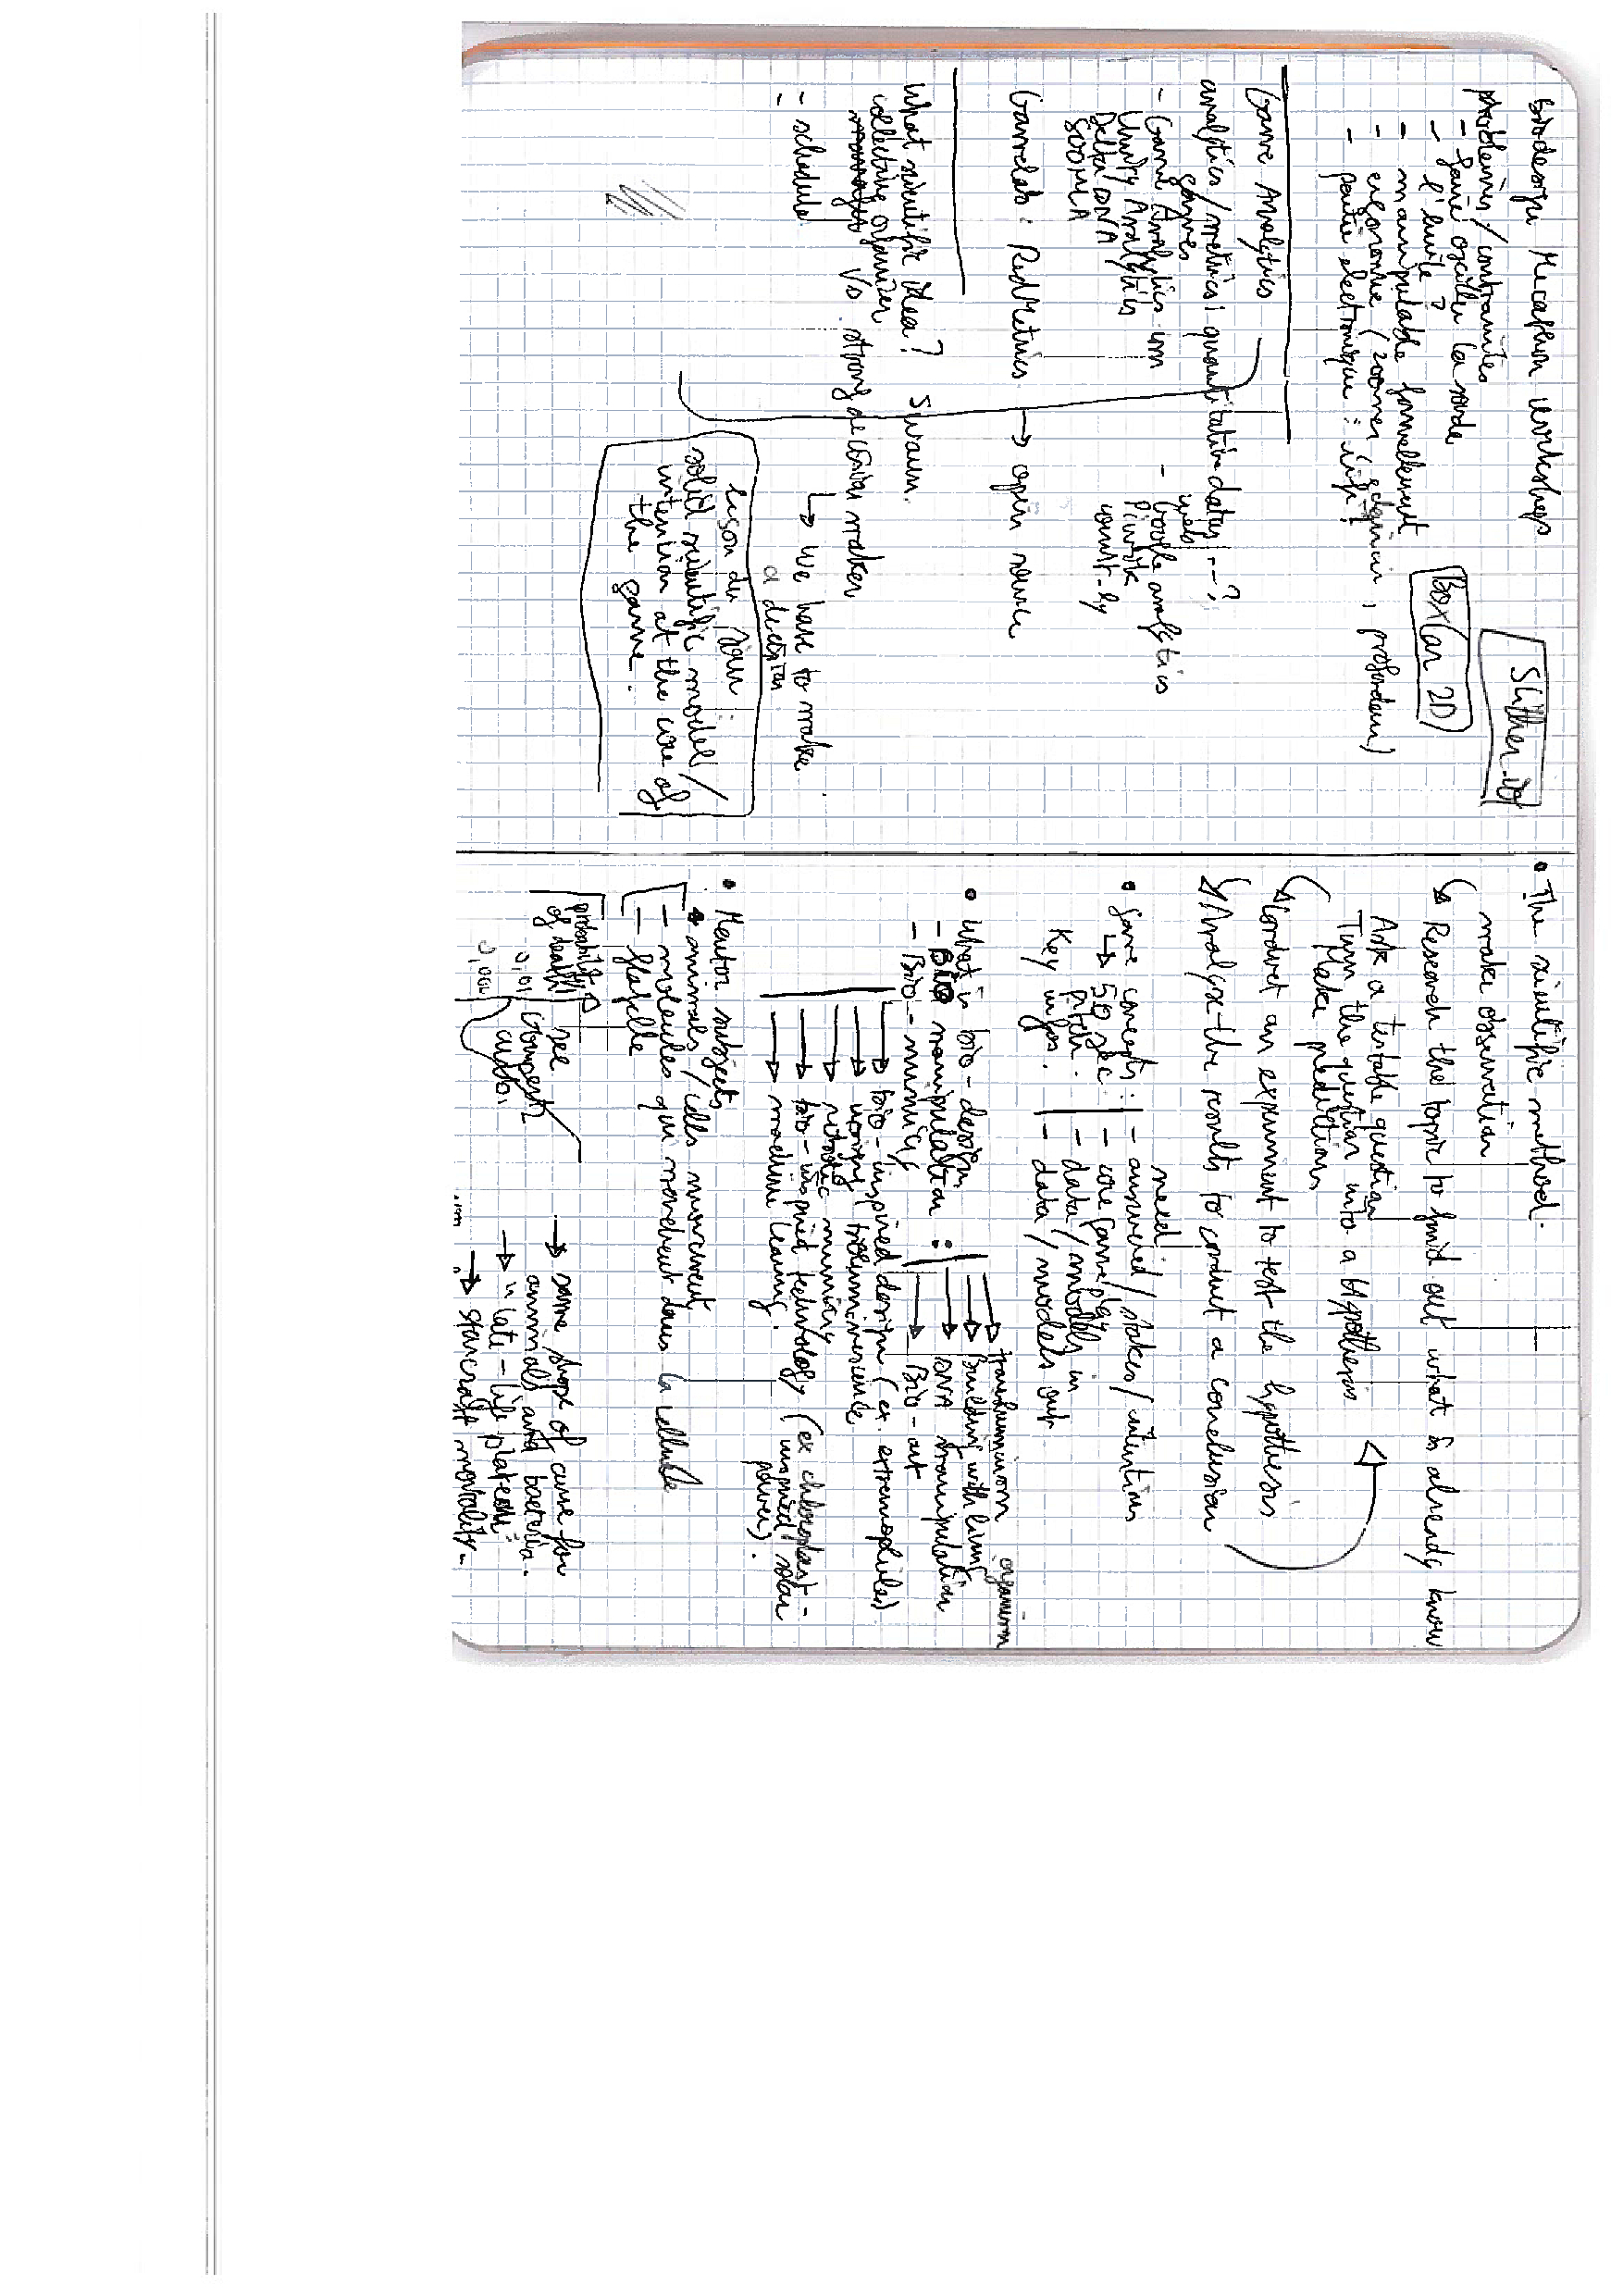 biodesign Mecafnon workshops
problèmes/contraintes
- faire osciller la sonde
- l'unité ?
- manipulable formellement
- ergonomie (zoomer, , profondeur)
- partie électronique : infi ?
Slither.io
BoxCar 2D
Game Analytics
analytics / metrics : quantitative datas ... ?
games
web
- Game Analytics
Unity Analytics
Delta DNA
SOOMLA
- Google analytics
Piwik
count.ly
Gamelab : RedMetrics → open source
What scientific idea ? Swarm.
collective organizer
vs. strong decision maker
- schedule
-
↳ we have to make
a decision.
solid scientific model /
intention at the core of
the game.
• The scientific method.
make observation
↳ Research the topic to find out what is already know
Ask a testable question
Turn the question into a hypothesis
Make predictions
↳ Conduct an experiment to test the hypothesis
↳ Analyze the results to conduct a conclusion
• Game concepts :
→ 50 sec
pitch.
Key infos.
need
- answered / stakes / intention
- core gameplay
- data / models in
- data / models out
• What is bio-design
- Bio manipulation :
→ transhumanism
→ Building with living organism
→ DNA manipulation
→ Bio-art
- Bio-mimicry
→ bio-inspired design (ex. extremophiles)
→ using bioluminescence
→ robotic mimicry
→ bio-inspired technology (ex chloroplast-
inspired solar
power).
→ machine learning.
• Mentor subjects
animals / cells movement
- molecules qui mordent dans la cellule
- flagelle
probability
of death
0,01
0,001
see
Gompertz
curbe.
→ same shape of curve for
animals and bacteria.
→ "late-life plateau"
→ starcraft mortality.